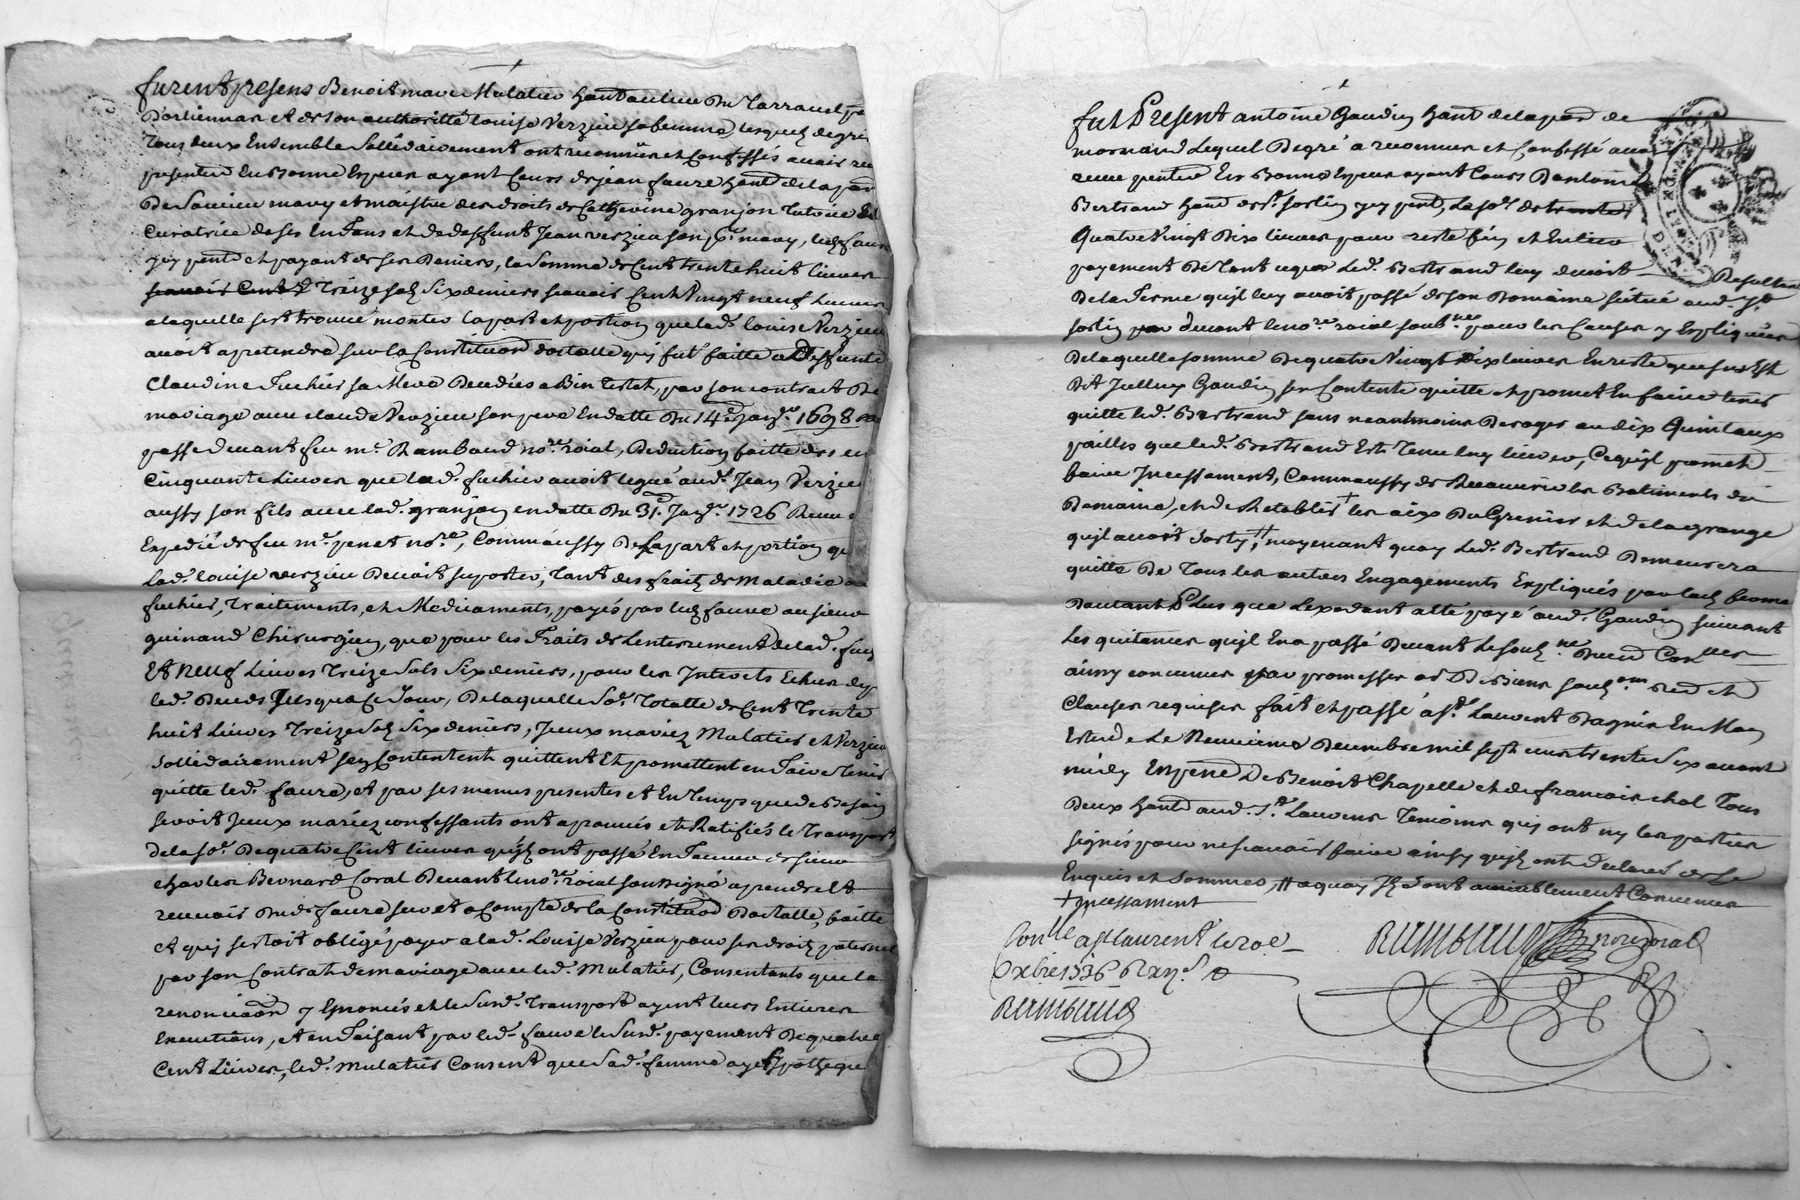 furent presens Benoit mavec Mulatier habt au lieu du Tarravel par
D'orliennas et de son authoritté Louise Verzieu sa femme, lesquels de gré
Tous deux Ensemble Sollidairement ont reconnu et Confessés avoir reçu
presentement En Bonne Espece ayant Cours de jean faure habt de la par
De Soucieu mary et maistre des droits de Catherine granjon Tutrice Et
Curatrice de ses Enfans et de deffunt Jean verzieu son pr mary, led faure
icy pent et payant de ses Deniers, la Somme de Cent trente huit livres
scavoir Cent Treize sols Six deniers scavoir Cent Vingt neuf Livres
a laquelle sest trouvé monter la part et portion que lad. louise Verzieu
avoit a pretendre sur la Constitution dotalle qui fut faitte a Deffunte
Claudine Fuchier sa Mere Decedée abintestat, par son contract De
mariage avec claude Verzieu son pere En datte Du 14e Janr 1698
passé devant feu me Rambaud nore roial, Deduction faitte des
Cinquante Livres que lad. fuchier avoit legué aud. Jean Verzieu
aussy son fils avec lad. granjon en datte Du 31 Janr 1726 Receu
Expedié de feu me penet nore, Comm'aussy De la part et portion que
Lad. louise verzieu Devoit suporter, Tant des fraits de Maladie
fuchier, Traitements, et Medicaments, payés par led faure au sieur
guinand Chirurgien, que pour les Fraits de Lenterrement de lad. fuch
Et neuf Livres Treize Sols Six deniers, pour les Interets Echus dep
led. Deceds Jusqua ce Jour, De laquelle So. Totalle de Cent Trente
huit Livres Treize Sols Six deniers, Jceux mariez Mulatier et Verzieu
Sollidairement sen Contentent quittent Et promettent en Faire Tenir
quitte led. faure, et par ses memes presentes et En Temps que de Besoin
seroit Jceux mariez confessants ont aprouvés et Ratifiés le Transport
de la so. De quatre Cent livres quils ont passé En faveur de sieur
charles Bernard Coral Devant le nore roial soussigné a prendre Et
recevoir Dud faure sur et a Compte de la Constitution Dotalle, faitte
et qui sestoit obligé payer a lad. Louise Verzieu pour ses droits paternel
par son Contrat de mariage avec led. Mulatier, Consentants que la
renonciaon y Enoncés et le susd. Transport ayent leurs Entieres
Executions, et en Faisant par led. faure le susd. payement De quatre
Cent Livres, led. Mulatier Consent que sad. femme aye hypotheque
fut Present antoine Gaudin habt de la par de
mornand Lequel De gré a reconnu et Confessé avoir
receu pentemt En Bonne Espece ayant Cours D'antoine
Bertrand habt de st sorlin icy pent, La so. de trente
Quatre Vingt Dix livres pour reste fin et Entier
payement De Tant ce que Led. Bertrand luy devoit De
De la Ferme quil luy avoit passé de son Domaine scitué aud. st
sorlin par devant le nore roial soubne pour les Causes y Expliquées
De laquelle somme De quatre Vingt dix livres En reste que sus Est
Dit Jcelluy Gaudin sen Contente quitte et promet En faire tenir
quitte led. Bertrand sans neantmoins Deroger au dix Quintaux
pailles que led. Bertrand Est Tenu luy livrer, Ce quil promet
faire Jncessament, Comm'aussy de Recouvrir les Batiments du
Domaine, et de Retablir + les aix Du Grenier et de la grange
quil avoit Sorty, # moyenant quoy Led. Bertrand Demeurera
quitte De Tous les autres Engagements Expliqués par lad ferme
Dautant Plus que le pendant a été payé aud. Gaudin suivant
Les quitances quil En a passé Devant Le soubne Dieud Conttes
ainsy convenu par promesses obon De Biens soubon Ren et
Clauses requises fait et passé a st Laurent Dagnin En Mon
Estude Le Neuvieme Decembre mil sept cent trente Six avant
midy En pnce De Benoit Chapelle et de francois chol Tous
Deux habt aud. st Laurent Temoins qui ont ny les parties
signés pour ne scavoir faire ainsy quils ont declaré de ce
Enquis et Sommés, # a quoy Jls sont amiablement Convenus
+ Jncessament
Conlle a st laurent le 20e
Xbre 1736 R xii s
Rambaud
Rambaud nore roial